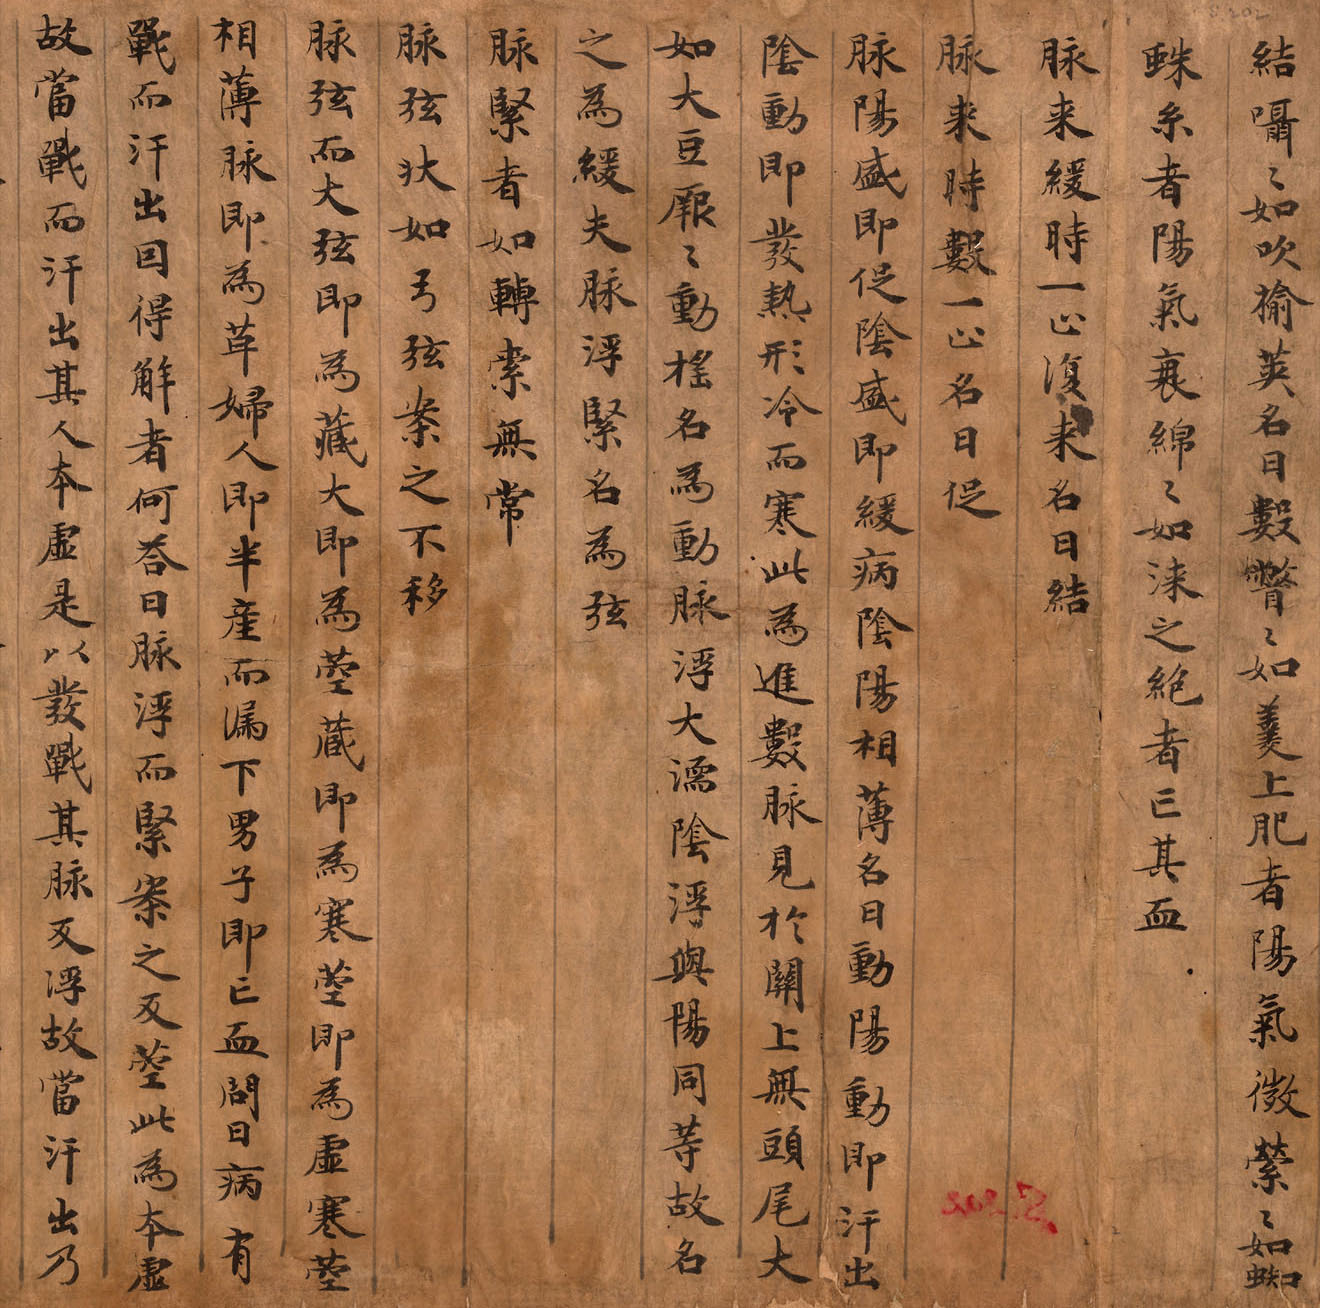 結囁〻如吹榆莢名曰數瞥〻如羹上肥者陽氣微縈〻如蜘
蛛糸者陽氣衰綿〻如涑之絶者亡其血
脉来緩時一止復来名曰結
脉来時數一止名曰促
脉陽盛即促陰盛即緩病陰陽相薄名曰動陽動即汗出
陰動即發熱形冷而寒此為進數脉見於關上無頭尾大
如大豆厥〻動楁名為動脉浮大濡陰浮與陽同等故名
之為緩夫脉浮緊名為弦
脉緊者如轉索無常
脉弦状如弓弦案之不移
脉弦而大弦即為藏大即為蓙藏即為寒蓙即為虛寒蓙
相薄脉即為革婦人即半産而漏下男子即亡血問曰病有
戰而汗出因得解者何荅曰脉浮而緊案之反蓙此為本虛
故當戰而汗出其人本虛是以發戰其脉反浮故當汗出乃
S.202
S.202